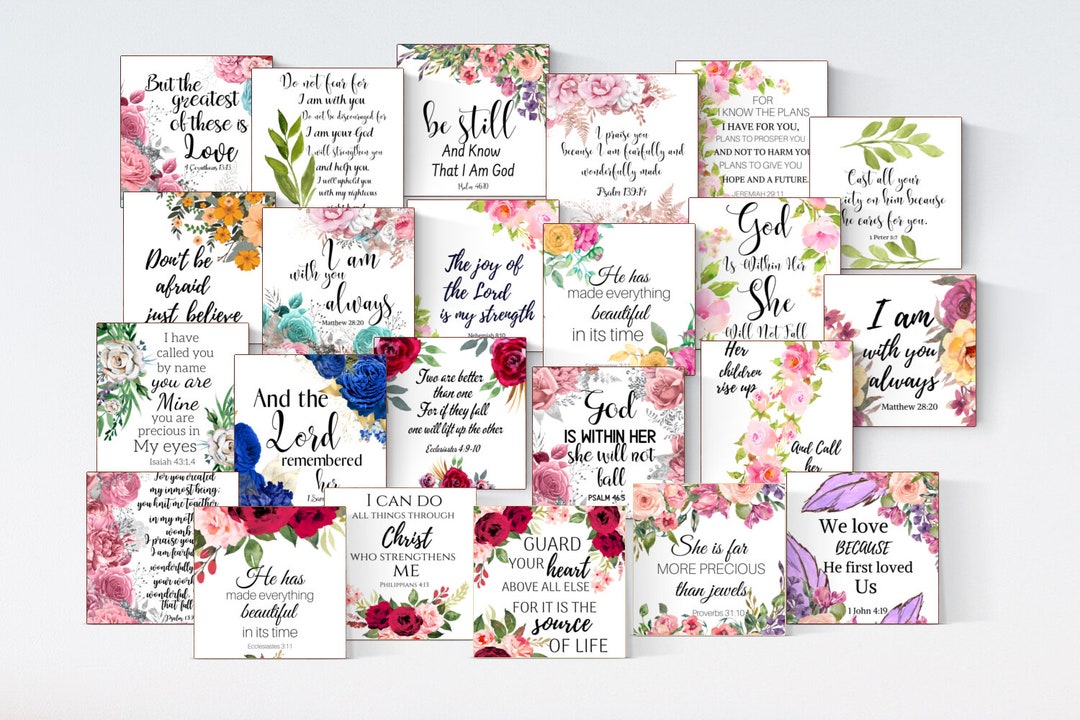 But the
greatest
of these is
Love
1 Corinthians 13:13
Do not fear for
I am with you
Do not be discouraged for
I am your God
I will strengthen you
and help you.
I will uphold you
with my righteous
right hand
be still
And Know
That I Am God
Psalm 46:10
I praise you
because I am fearfully and
wonderfully made
Psalm 139:14
FOR
I KNOW THE PLANS
I HAVE FOR YOU,
PLANS TO PROSPER YOU
AND NOT TO HARM YOU
PLANS TO GIVE YOU
HOPE AND A FUTURE.
JEREMIAH 29:11
Cast all your
on him because
he cares for you.
1 Peter 5:7
Don't be
afraid
just believe
I am
with you
always
Matthew 28:20
The joy of
the Lord
is my strength
Nehemiah 8:10
He has
made everything
beautiful
in its time
God
Is Within Her
She
Will Not Fall
I am
with you
always
Matthew 28:20
I have
called you
by name
you are
Mine
you are
precious in
My eyes
Isaiah 43:1,4
And the
Lord
remembered
her
1 Sam
Two are better
than one
For if they fall
one will lift up the other
Ecclesiastes 4:9-10
God
IS WITHIN HER
she will not
fall
PSALM 46:5
Her
children
rise up
And Call
her
For you created
my inmost being;
you knit me together
in my moth
womb.
I praise you
I am fearfu
wonderfully
your work
wonderful,
that full
Psalm 139
He has
made everything
beautiful
in its time
Ecclesiastes 3:11
I CAN DO
ALL THINGS THROUGH
Christ
WHO STRENGTHENS
ME
PHILIPPIANS 4:13
GUARD
YOUR heart
ABOVE ALL ELSE
FOR IT IS THE
source
OF LIFE
She is far
MORE PRECIOUS
than jewels
Proverbs 31:10
We love
BECAUSE
He first loved
Us
1 John 4:19